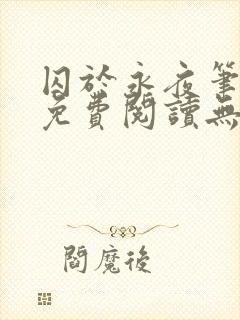 囚於永夜筆
免費閱讀無
閻魔後